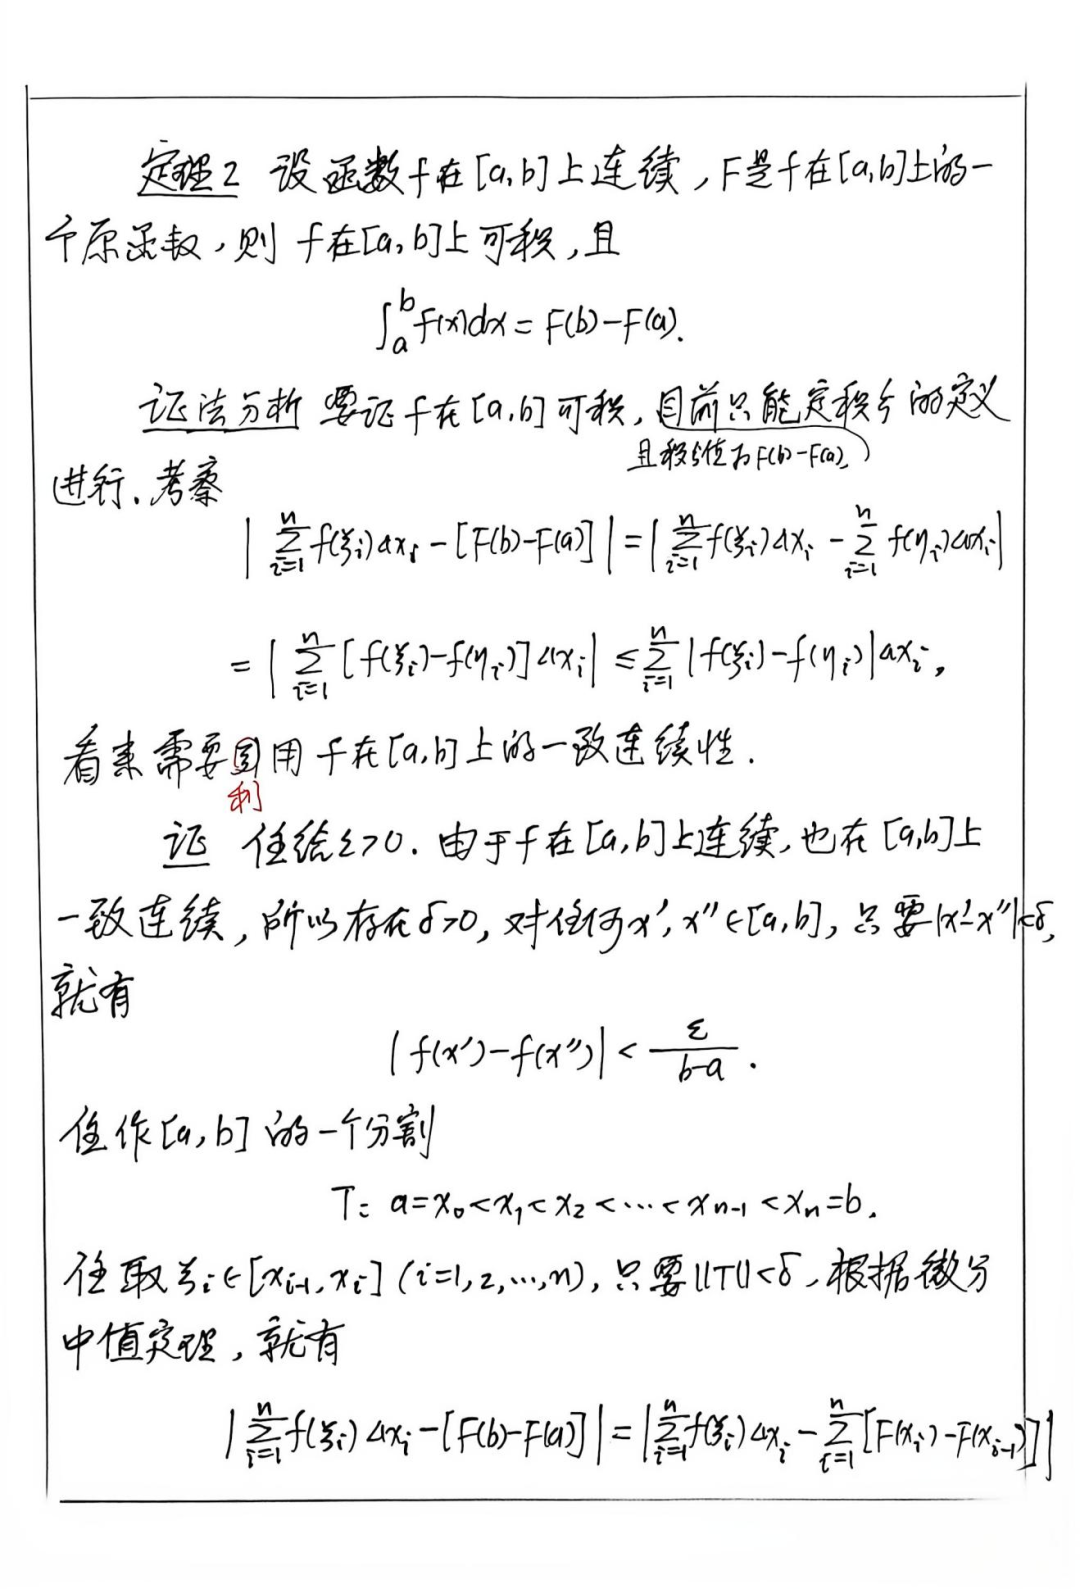 定理2 设函数f在[a,b]上连续,F是f在[a,b]上的一
个原函数,则 f在[a,b]上可积,且
∫_a^b f(x)dx = F(b)-F(a).
证法分析 要证f在[a,b]可积,目前只能定积分的定义
且积分值为F(b)-F(a),
进行.考察
|∑_{i=1}^n f(ξ_i)Δx_i - [F(b)-F(a)]| = |∑_{i=1}^n f(ξ_i)Δx_i - ∑_{i=1}^n f(η_i)Δx_i|
= |∑_{i=1}^n [f(ξ_i)-f(η_i)]Δx_i| ≤ ∑_{i=1}^n |f(ξ_i)-f(η_i)|Δx_i,
看来需要用f在[a,b]上的一致连续性.
利
证 任给ε>0. 由于f在[a,b]上连续,也在[a,b]上
一致连续,所以存在δ>0,对任何x′,x″∈[a,b],只要|x′-x″|<δ,
就有
|f(x′)-f(x″)| < ε/(b-a).
任作[a,b]的一个分割
T: a=x_0<x_1<x_2<…<x_{n-1}<x_n=b.
任取ξ_i∈[x_{i-1},x_i](i=1,2,…,n),只要||T||<δ,根据微分
中值定理,就有
|∑_{i=1}^n f(ξ_i)Δx_i - [F(b)-F(a)]| = |∑_{i=1}^n f(ξ_i)Δx_i - ∑_{i=1}^n [F(x_i)-F(x_{i-1})]|